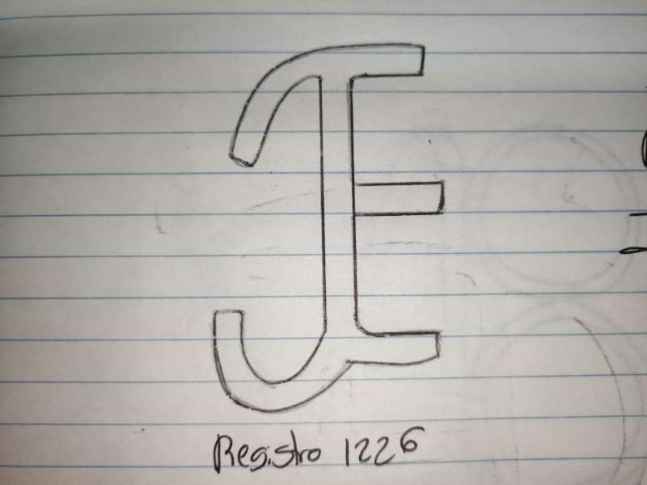 Registro 1226